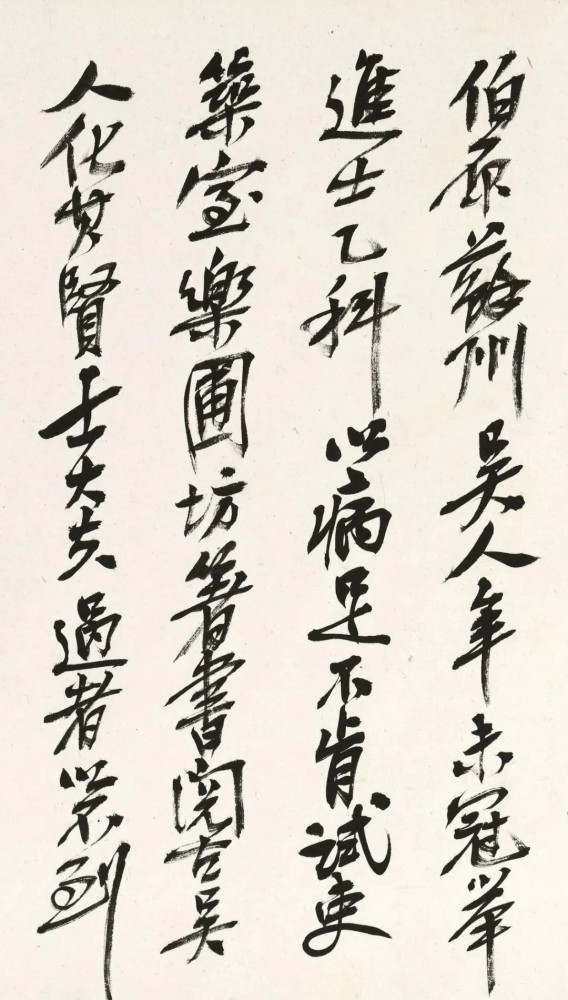 伯原蘇州吳人年未冠舉
進士乙科以病足不肯試吏
築室樂圃坊著書閱古吳
人化其賢士大夫過者以不到